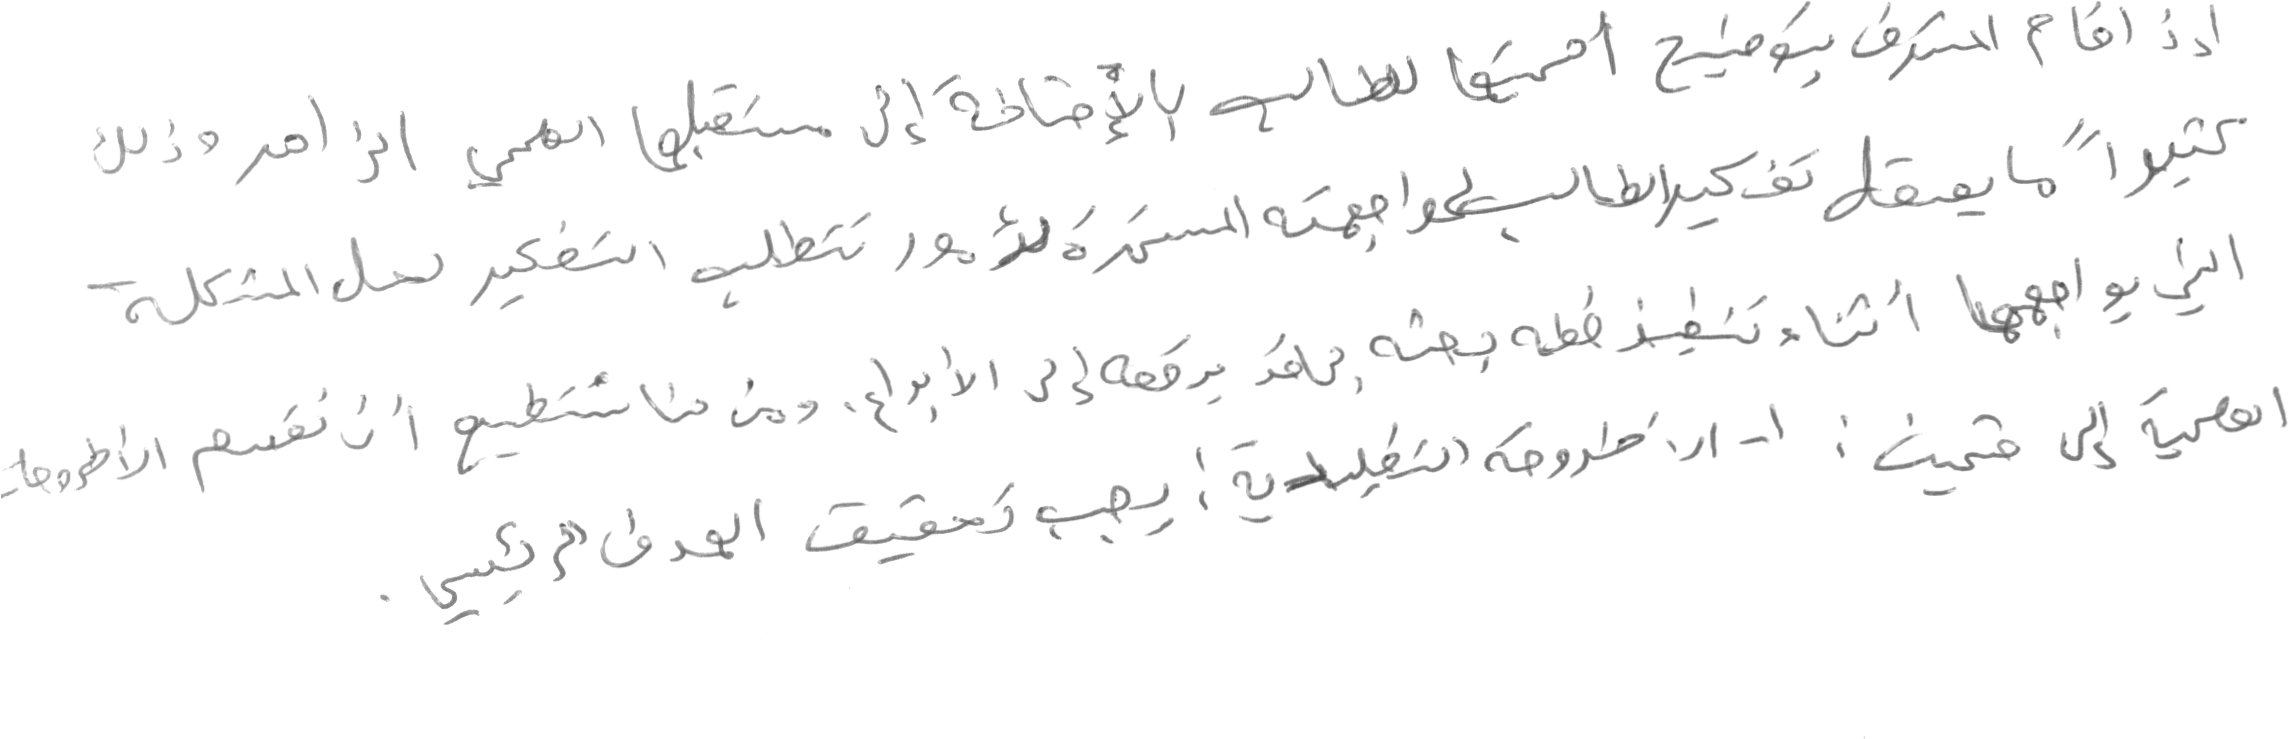 إذا قام المشرف بتوضيح أهميتها للطالب بالإضافة إلى مستقبلها العلمي الزاهر وذلك
كثيراً ما يصقل تفكير الطالب لمواجهته المستمرة لأمور تتطلب التفكير لحل المشكلة
التي يواجهها أثناء تنفيذ خطه بحثه بما قد يدفعه إلى الإبداع. ومن هنا نستطيع أن نقسم الأطروحات
العلمية إلى قسمين : ١- الأطروحة التقليدية : يجب تحقيق الهدف الرئيسي .